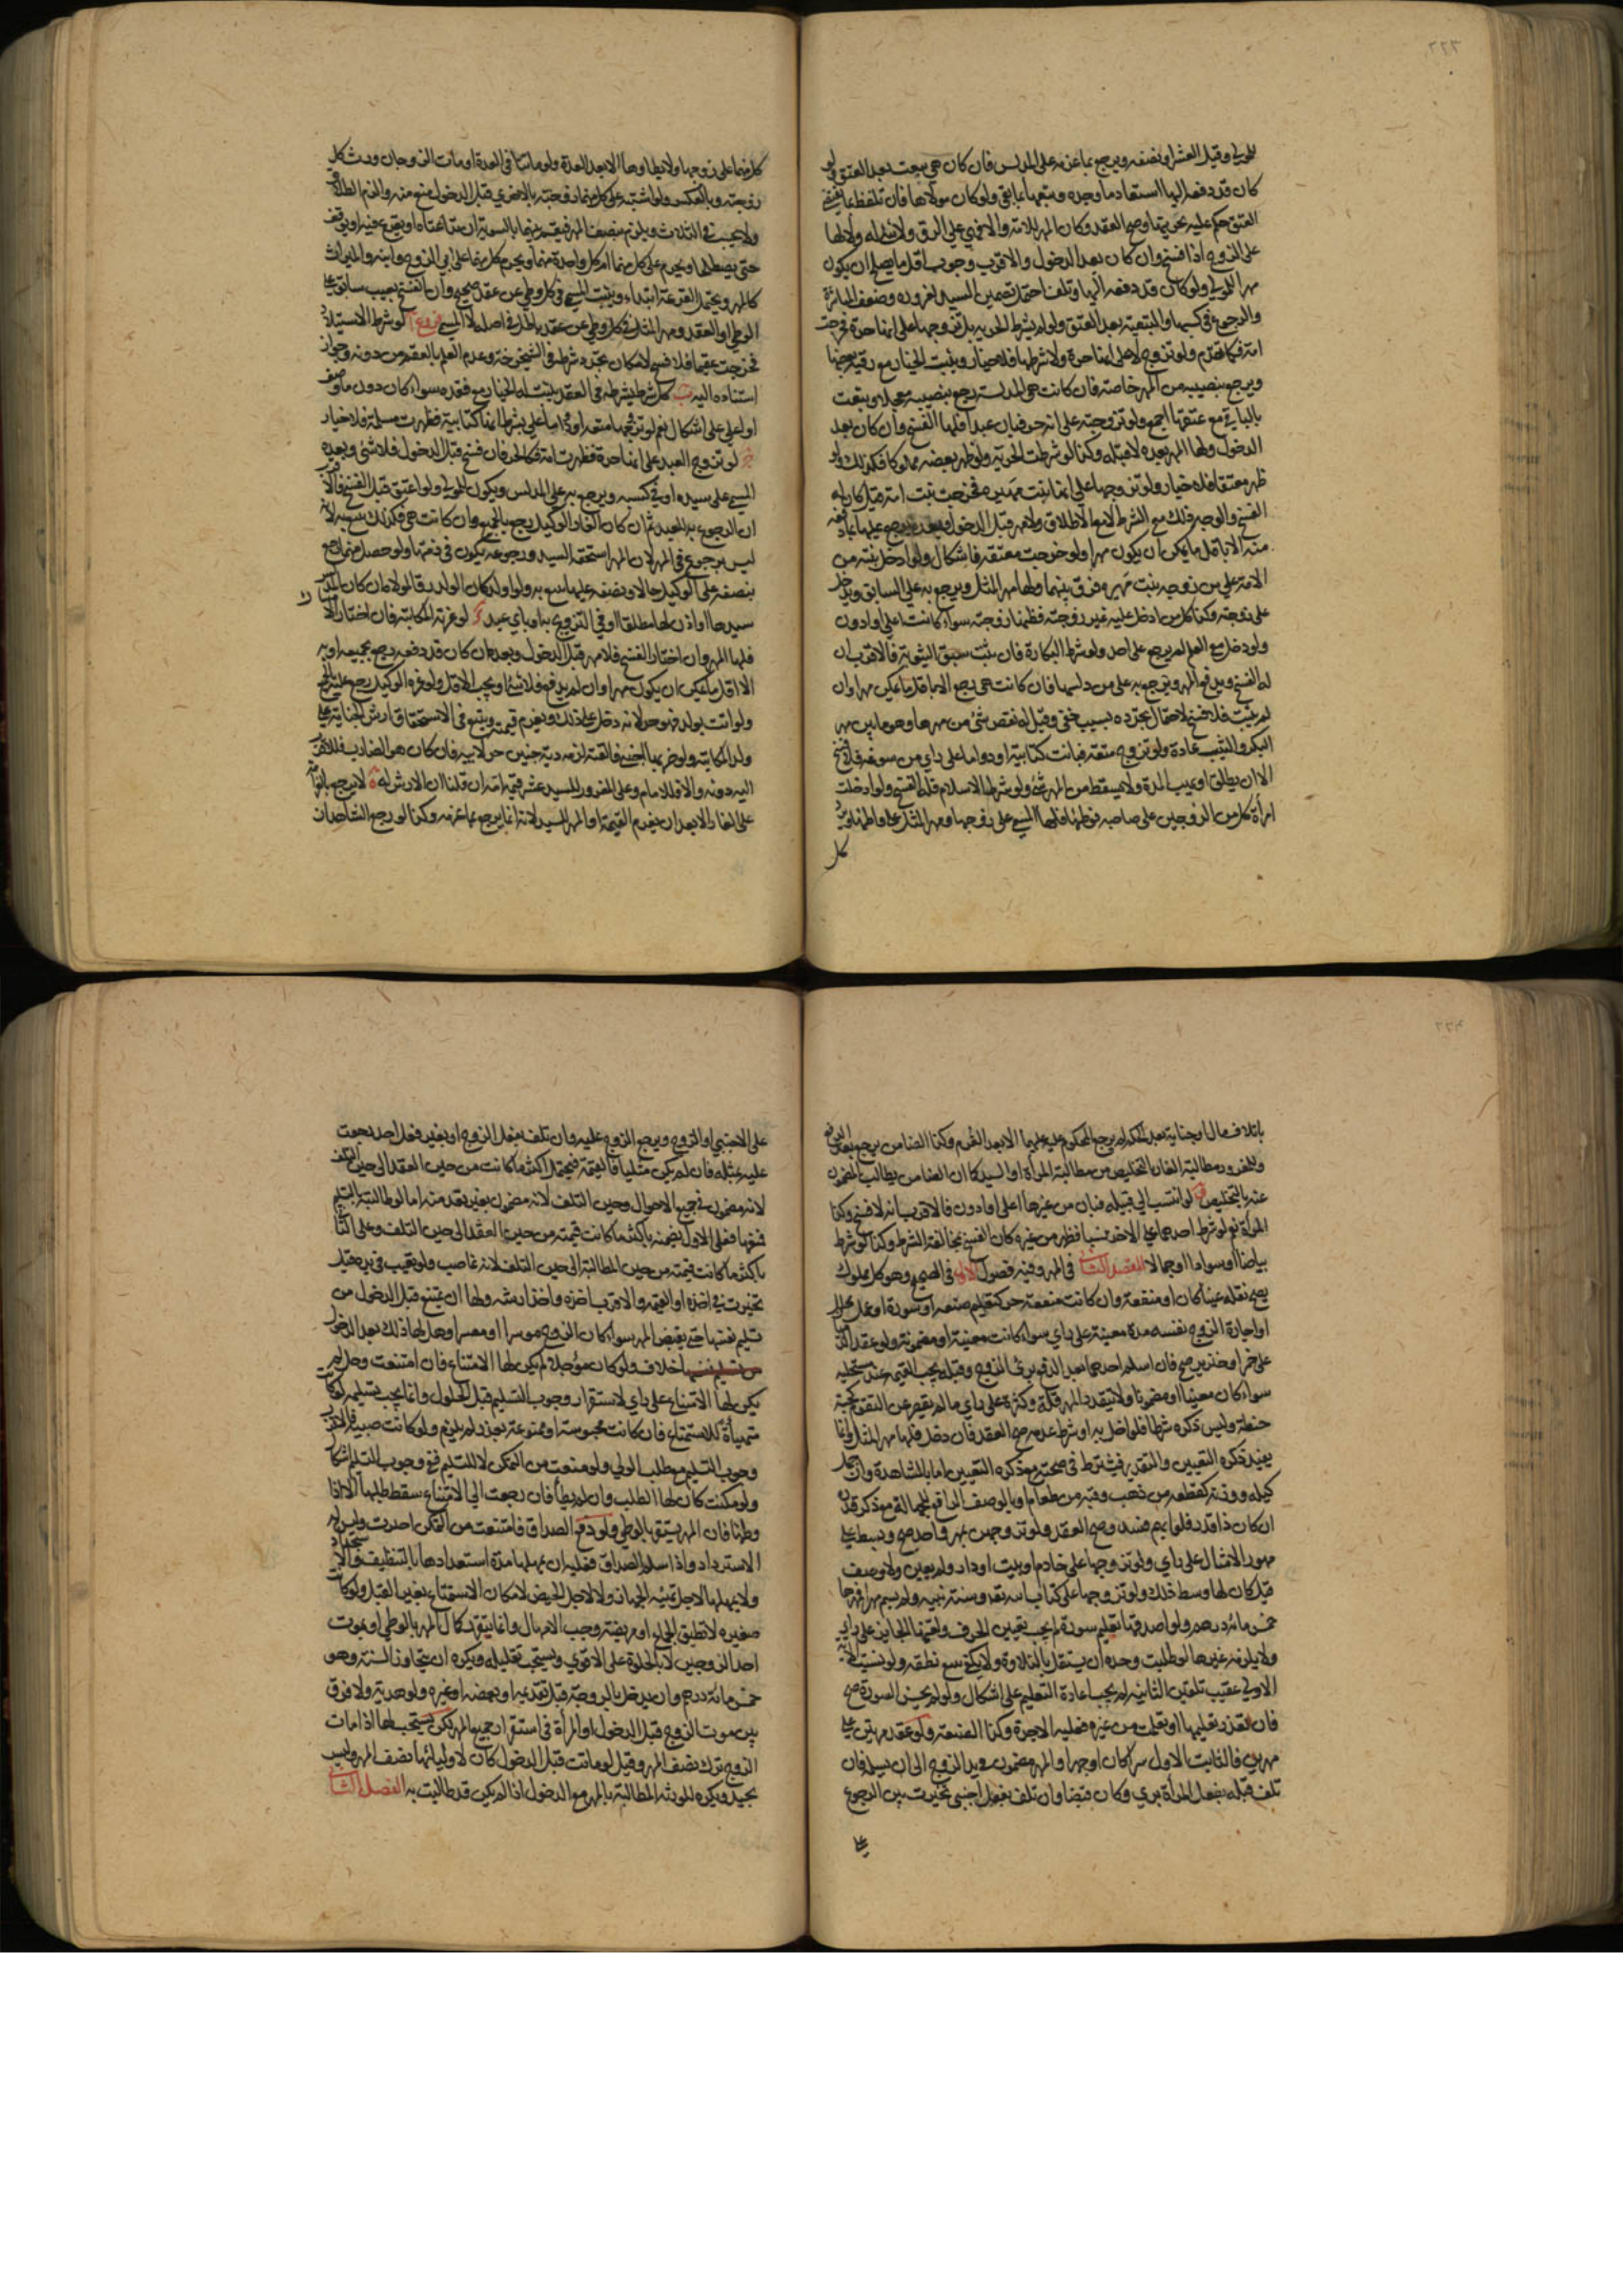 ٢٢٣
للمولى وقيل العشر او نصفه ويرجع بما غرمه على المدلس فان كان هي بيعت بعد العتق ولو
كان قد دفعه اليها استعاد ما وجده وتبعها بما بقي ولو كان مولاها فان تلفظ بما يقتضي
العتق حكم عليه بحريتها وصح العقد وكان المهر للامة والا فهي على الرق ولا شيء له ولا لها
على الزوج اذا فسخ وان كان بعد الدخول والاقرب وجوب اقل ما يصلح ان يكون
مهرا للمولى ولو كان قد دفعه اليها وتلف احتمل تضمين السيد لغروره وضعف المباشرة
والرجوع في كسبها والتبعية بعد العتق ولو لم يشترط الحرية بل تزوجها على انها حرة فخرجت
امة فكما تقدم ولو تزوج لا على انها حرة ولا شرطها فلا خيار ويثبت الخيار مع رقية بعضها
ويرجع بنصيبه من المهر خاصة فان كانت هي المدلسة رجع بنصيبه معجلا وتبعت
بالباقي مع عتقها اجمع ولو تزوجته على انه حر فبان عبدا فلها الفسخ وان كان بعد
الدخول ولها المهر بعده لا قبله وكذا لو شرطت الحرية ولو ظهر بعضه مملوكا فكذلك ولو
ظهر معتقا فلا خيار ولو تزوجها على انها بنت مهيرة فخرجت بنت امة قيل كان له
الفسخ والوجه ذلك مع الشرط لا مع الاطلاق ولا مهر قبل الدخول وبعده يرجع عليها بما دفعه
منه الا باقل ما يمكن ان يكون مهرا ولو خرجت معتقة فاشكال ولو ادخل بنته من
الامة على من زوجه بنت مهيرة فرق بينهما ولها مهر المثل ويرجع به على السابق ويدخل
على زوجته وكذا كل من ادخل عليه غير زوجته فظنها زوجته سواء كانت اعلى او ادون
ولو دخل مع العلم لم يرجع على احد ولو شرط البكارة فان ثبت سبق الثيوبة فالاقرب ان
له الفسخ ويدفع المهر ويرجع به على من دلسها فان كانت هي رجع الا باقل ما يمكن مهرا وان
لم يثبت فلا فسخ لاحتمال تجدده بسبب خفي وقيل له نقص شيء من مهرها وهو ما بين مهر
البكر والثيب عادة ولو تزوج متعة فبانت كتابية او دواما على راي من سوغه فلا فسخ
الا ان يطلق او يهب المدة ولا يسقط من المهر شيء ولو شرط الاسلام فله الفسخ ولو ادخلت
امرأة كل من الزوجين على صاحبه فوطئها فلها المسمى على زوجها ومهر المثل على واطئها ويرد
كل
كل منهما على زوجها ولا يطاوها الا بعد العدة ولو ماتتا في العدة او مات الزوجان ورث كل
زوجته وبالعكس ولو اشتبه على كل منهما زوجته بالاخرى قبل الدخول منع منه والزم الطلاق
ولا يحسب في الثلاث ويلزم بنصف المهر فيقسم بينهما بالسوية ان تداعتاه او يقرع فيه او يوقف
حتى يصطلحا ويحرم على كل منهما ام كل واحدة منهما ويحرم كل منهما على ابي الزوج وابنه والميراث
كالمهر ويحتمل القرعة ابتداء ويثبت المسمى في كل وطي عن عقد صحيح وان انفسخ بعيب سابق على
الوطي او العقد ومهر المثل في كل وطي عن عقد باطل في اصله لا المسمى فروع ا لو شرط الاستيلاد
فخرجت عقيما فلا فسخ لامكان تجدد شرطه في الشيخوخة وعدم العلم بالعقم من دونه وجواز
استناده اليه ب كل شرط يشرطه في العقد يثبت له الخيار مع فقده سواء كان دون ما وصف
او اعلى على اشكال نعم لو تزوجها متعة او دواما على بشرط انها كتابية فظهرت مسلمة فلا خيار
ج لو تزوج العبد على انها حرة فظهرت امة فكالحر فان فسخ قبل الدخول فلا شيء وبعده
المسمى على سيده او في كسبه ويرجع به على المدلس ويكون للمولى ولو اعتق قبل الفسخ فالاقرب
ان الرجوع به للعبد ثم ان كان الغار الوكيل رجع بالجميع وان كانت هي فكذلك تتبع به لانه
ليس برجوع في المهر لان المهر استحقه السيد ورجوعه يكون في ذمتها ولو حصل منهما رجع
بنصفه على الوكيل حالا وبنصفه عليها تتبع به ولو اولد كان الولد رقا لمولاه ان كان المدلس
سيدها او اذن لها مطلقا او في التزوج به او باي عبد د لو غرته المكاتبة فان اختار الامساك
فلها المهر وان اختار الفسخ فلا مهر قبل الدخول وبعده ان كان قد دفعه رجع بجميعه او به
الا اقل ما يمكن ان يكون مهرا وان لم يدفع فلا شيء او يجب الاقل ولو غره الوكيل رجع عليه بالجميع
ولو اتت بولد فهو حر لانه دخل على ذلك ويغرم قيمته ويتبع في الاستحقاق ارش الجناية على
ولد المكاتبة ولو ضربها اجنبي فالقته لزمه دية جنين حر لابيه فان كان هو الضارب فللاقرب
اليه دونه والا فللامام وعلى المغرور للسيد عشر قيمة امه ان قلنا ان الارش له ه لا يرجع بالغرامة
على الغار الا بعد ان يغرم القيمة او المهر للسيد لانه انما يرجع بما غرمه وكذا لو رجع الشاهدان
٢٢٤
باتلاف مال او جناية بعد الحكم لم يرجع المحكوم عليه عليهما الا بعد الغرم وكذا الضامن يرجع بعد الدفع
وللمغرور مطالبة الغار التخليص من مطالبة المرأة او السيد كما ان الضامن يطالب المضمون
عنه بالتخليص و لو انتسب الى قبيلة فبان من غيرها اعلى او ادون فالاقرب انه لا فسخ وكذا
المرأة نعم لو شرط احدهما على الاخر نسبا فظهر من غيره كان الفسخ لمخالفة الشرط وكذا لو شرط
بياضا او سوادا او جمالا المقصد الثاني في المهر وفيه فصول الاول في الصحيح وهو كل مملوك
يصح نقله عينا كان او منفعة وان كانت منفعة حر كتعليم صنعة او سورة او عمل محلل
او اجارة الزوج نفسه مدة معينة على راي سواء كانت معينة او مضمونة ولو عقد الذميان
على خمر او خنزير صح فان اسلم احدهما بعد الدفع برئ الزوج وقبله يجب القيمة عند مستحليه
سواء كان معينا او مضمونا ولا يتقدر المهر قلة وكثرة على راي ما لم يقصر عن التقويم كحبة
حنطة وليس ذكره شرطا فلو اخل به او شرط عدمه صح العقد فان دخل فلها مهر المثل وانما
يفيد ذكره التعيين والتقدير فيشترط في صحته مع ذكره التعيين اما بالمشاهدة وان جهل
كيله ووزنه كقطعة من ذهب وقبة من طعام او بالوصف الرافع للجهالة مع ذكر قدره
ان كان ذا قدر فلو ابهم فسد وصح العقد ولو تزوجهن بمهر واحد صح وبسط على
مهور الامثال على راي ولو تزوجها على خادم او بيت او دار ولم يعين ولا وصف
قيل كان لها وسط ذلك ولو تزوجها على كتاب الله تعالى وسنة نبيه ولم يسم مهرا فمهرها
خمس مائة درهم ولو اصدقها تعليم سورة لم يجب تعيين الحرف ولقنها الجائز على راي
ولا يلزمه غيرها لو طلبت وحده ان يستقل بالتلاوة ولا يكفي تتبع نطقه ولو نسيت الاية
الاولى عقيب تلقين الثانية لم يجب اعادة التعليم على اشكال ولو لم يحسن السورة صح
فان تعذر تعليمها او تعلمت من غيره فعليه الاجرة وكذا الصنعة ولو عقد مرتين على
مهرين فالثابت الاول سرا كان او جهرا والمهر مضمون في يد الزوج الى ان يسلمه فان
تلف قبله بفعل المرأة برئ وكان قبضا وان تلف بفعل اجنبي تخيرت بين الرجوع
على
على الاجنبي او الزوج ويرجع الزوج عليه وان تلف بفعل الزوج او بغير فعل احد رجعت
عليه بمثله فان لم يكن مثليا فالقيمة فيحتمل اكثر ما كانت من حين العقد الى حين التلف
لانه مضمون في جميع الاحوال وحين التلف لانه مضمون بغير تعد منه اما لو طالبته بالتسليم
فمنعها فعلى الاول يضمنه باكثر ما كانت قيمته من حين العقد الى حين التلف وعلى الثاني
باكثر ما كانت قيمته من حين المطالبة الى حين التلف لانه غاصب ولو تعيب في يده قيل
تخيرت في اخذه او القيمة والاقرب اخذه واخذ ارشه ولها ان تمتنع قبل الدخول من
تسليم نفسها حتى يقبض المهر سواء كان الزوج موسرا او معسرا وهل لها ذلك بعد الدخول
خلاف ولو كان مؤجلا لم يكن لها الامتناع فان امتنعت وحل لم
يكن لها الامتناع على راي لاستقرار وجوب التسليم قبل الحلول وانما يجب تسليمه لو كانت
متهيأة للاستمتاع فان كانت محبوسة او ممنوعة بعذر لم يلزم ولو كانت صبية فالاقرب
وجوب التسليم مع طلب الولي ولو منعت من التمكين لا للتسليم ففي وجوب التسليم اشكال
ولو مكنت كان لها الطلب وان لم يطأ فان رجعت الى الامتناع سقط طلبها الا اذا
وطئها فان المهر يستقر بالوطي ولو دفع الصداق فامتنعت من التمكين اجبرت وليس له
الاسترداد واذا سلم الصداق فعليه ان يمهلها مدة استعدادها بالتنظيف والاستحداد
ولا يمهلها لاجل تهيئة الجهاز ولا لاجل الحيض لامكان الاستمتاع بغير القبل ولو كانت
صغيرة لا تطيق الجماع او مريضة وجب الامهال وانما يتقرر كمال المهر بالوطي او بموت
احد الزوجين لا بالخلوة على الاقوى ويستحب تقليله ويكره ان يتجاوز السنة وهو
خمس مائة درهم وان يدخل بالزوجة قبل تقديمه او بعضه او غيره ولو هدية ولا فرق
بين موت الزوج قبل الدخول او المرأة في استقرار جميع المهر لكن يستحب لها اذا مات
الزوج ترك نصف المهر وقيل لو ماتت قبل الدخول كان لاوليائها نصف المهر وليس
بجيد ويكره للورثة المطالبة بالمهر مع الدخول اذا لم يكن قد طالبت به الفصل الثاني